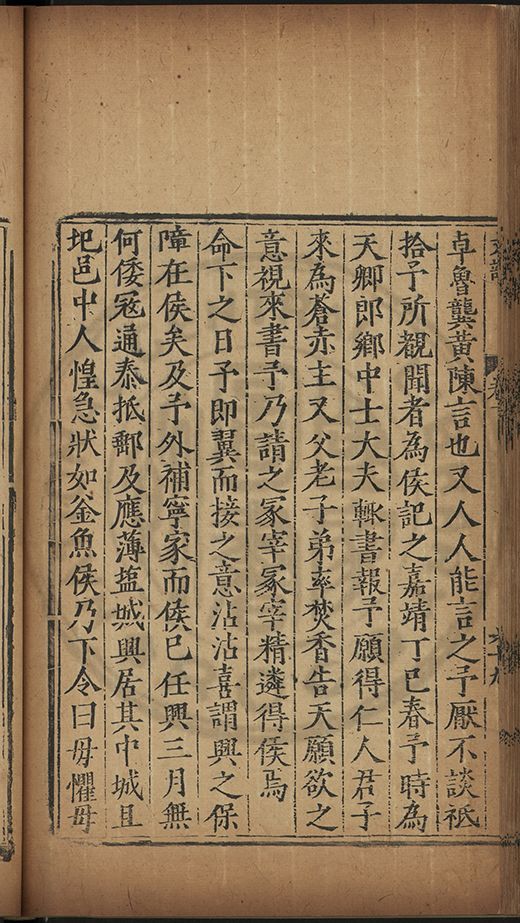 卓魯龔黃陳言也又人人能言之予厭不談祗
拾予所觀聞者為侯記之嘉靖丁巳春予時為
天卿郎鄉中士大夫輙書報予願得仁人君子
來為蒼赤主又父老子弟率焚香告天願欲之
意視來書予乃請之冢宰冢宰精遴得侯焉
命下之日予即翼而接之意沾沾喜謂興之保
障在侯矣及予外補寧家而侯已任興三月無
何倭寇通泰抵郵及應薄盐城興居其中城且
圯邑中人惶急狀如釡魚侯乃下令曰毋懼毋